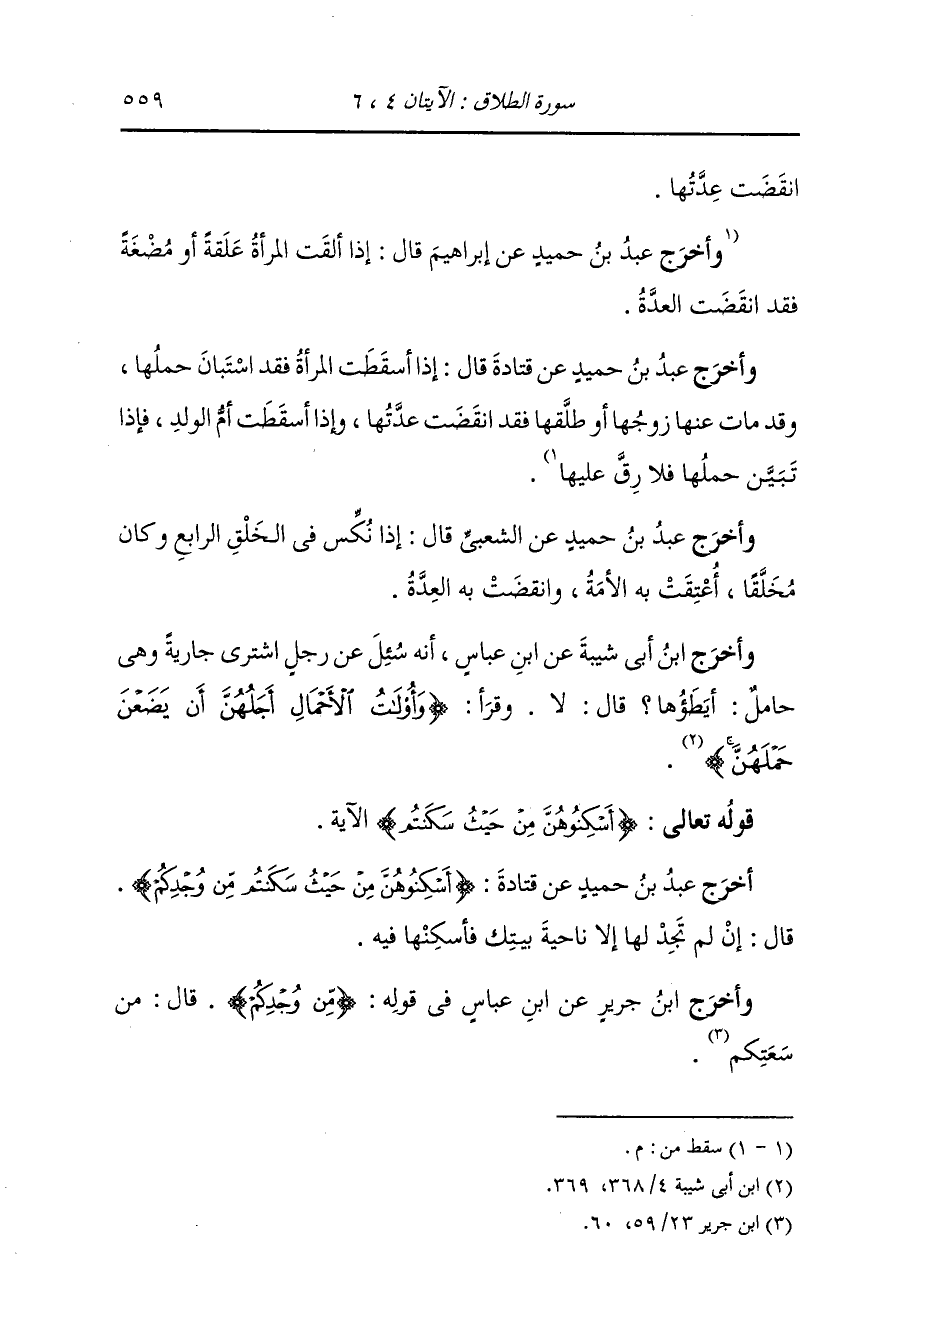 سورة الطلاق : الآيتان ٤ ، ٦ ٥٥٩
انقَضَت عِدَّتُها .
(١وأخرَج عبدُ بنُ حميدٍ عن إبراهيمَ قال : إذا ألقَت المرأةُ عَلَقةً أو مُضْغَةً
فقد انقَضَت العدَّةُ .
وأخرَج عبدُ بنُ حميدٍ عن قتادةَ قال : إذا أسقَطَت المرأةُ فقد اسْتَبانَ حملُها ،
وقد مات عنها زوجُها أو طلَّقها فقد انقَضَت عدَّتُها ، وإذا أسقَطَت أمُّ الولدِ ، فإذا
تَبَيَّن حملُها فلا رِقَّ عليها١) .
وأخرَج عبدُ بنُ حميدٍ عن الشعبىِّ قال : إذا نُكِّس فى الخَلْقِ الرابعِ وكان
مُخَلَّقًا ، أُعْتِقَتْ به الأمَةُ ، وانقضَتْ به العِدَّةُ .
وأخرَج ابنُ أبى شيبةَ عن ابنِ عباسٍ ، أنه سُئِلَ عن رجلٍ اشترى جاريةً وهى
حاملٌ : أيَطَؤُها ؟ قال : لا . وقرَأ : ﴿وَأُوْلَٰتُ ٱلْأَحْمَالِ أَجَلُهُنَّ أَن يَضَعْنَ
حَمْلَهُنَّۚ﴾(٢) .
قولُه تعالى : ﴿أَسْكِنُوهُنَّ مِنْ حَيْثُ سَكَنتُم﴾ الآية .
أخرَج عبدُ بنُ حميدٍ عن قتادةَ : ﴿أَسْكِنُوهُنَّ مِنْ حَيْثُ سَكَنتُم مِّن وُجْدِكُمْ﴾ .
قال : إنْ لم تَجِدْ لها إلا ناحيةَ بيتِك فأسكِنْها فيه .
وأخرَج ابنُ جريرٍ عن ابنِ عباسٍ فى قولِه : ﴿مِّن وُجْدِكُمْ﴾ . قال : من
سَعَتِكم(٣) .
(١ - ١) سقط من : م .
(٢) ابن أبى شيبة ٤/ ٣٦٨، ٣٦٩.
(٣) ابن جرير ٢٣/ ٥٩، ٦٠.